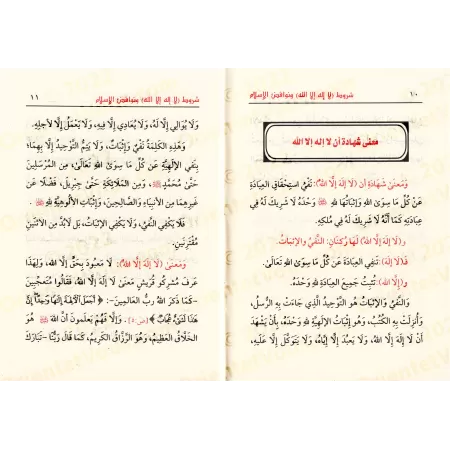 ١٠ شروط (لا إله إلا الله) ونواقض الإسلام
معنى شهادة أن لا إله إلا الله
وَمَعْنَى شَهَادَةِ أَن (لَا إِلَهَ إِلَّا اللهُ): نَفْيُ اسْتِحْقَاقِ العِبَادَةِ
عَنْ كُلِّ مَا سِوَى اللهِ وَإِثْبَاتُهَا للهِ ﷻ وَحْدَهُ لَا شَرِيكَ لَهُ فِي
عِبَادَتِهِ كَمَا أَنَّهُ لَا شَرِيكَ لَهُ فِي مُلْكِهِ.
و(لَا إِلَهَ إِلَّا اللهُ) لَهَا رُكْنَانِ: النَّفْيُ وَالإِثْبَاتُ.
فـ(لَا إِلَهَ): تَنْفِي العِبَادَةَ عَنْ كُلِّ مَا سِوَى اللهِ تَعَالَى.
و(إِلَّا اللهُ): تُثْبِتُ جَمِيعَ العِبَادَةِ للهِ وَحْدَهُ.
وَالنَّفْيُ وَالإِثْبَاتُ هُوَ التَّوْحِيدُ الَّذِي جَاءَتْ بِهِ الرُّسُلُ،
وَأُنْزِلَتْ بِهِ الكُتُبُ، وَهُوَ إِثْبَاتُ الإِلَهِيَّةِ للهِ وَحْدَهُ، بِأَنْ يَشْهَدَ
أَنْ لَا إِلَهَ إِلَّا اللهُ، وَلَا يَعْبُدَ إِلَّا إِيَّاهُ، وَلَا يَتَوَكَّلَ إِلَّا عَلَيْهِ،
شروط (لا إله إلا الله) ونواقض الإسلام ١١
وَلَا يُوَالِيَ إِلَّا لَهُ، وَلَا يُعَادِيَ إِلَّا فِيهِ، وَلَا يَعْمَلَ إِلَّا لِأَجْلِهِ.
وَهَذِهِ الكَلِمَةُ نَفْيٌ وَإِثْبَاتٌ، وَلَا يَتِمُّ التَّوْحِيدُ إِلَّا بِهِمَا،
بِنَفْيِ الإِلَهِيَّةِ عَنْ كُلِّ مَا سِوَى اللهِ تَعَالَى، مِنَ المُرْسَلِينَ
حَتَّى مُحَمَّدٍ ﷺ، وَمِنَ المَلَائِكَةِ حَتَّى جِبْرِيلَ، فَضْلًا عَنْ
غَيْرِهِمَا مِنَ الأَنْبِيَاءِ وَالصَّالِحِينَ، وَإِثْبَاتِ الأُلُوهِيَّةِ للهِ ﷻ.
فَلَا يَكْفِي النَّفْيُ، وَلَا يَكْفِي الإِثْبَاتُ، بَل لَابُدَّ مِنَ الاثْنَيْنِ
مُقْتَرِنَيْنِ.
وَمَعْنَى (لَا إِلَهَ إِلَّا اللهُ): لَا مَعْبُودَ بِحَقٍّ إِلَّا اللهُ، وَلِهَذَا
عَرَفَ مُشْرِكُو قُرَيْشٍ مَعْنَى لَا إِلَهَ إِلَّا اللهُ، فَقَالُوا مُتَعَجِّبِينَ
-كَمَا ذَكَرَ اللهُ رَبُّ العَالَمِينَ-: ﴿أَجَعَلَ الْآلِهَةَ إِلَهًا وَاحِدًا إِنَّ
هَذَا لَشَيْءٌ عُجَابٌ﴾ [ص:٥]. وَإِلَّا فَهُمْ يَعْلَمُونَ أَنَّ اللهَ ﷻ هُوَ
الخَلَّاقُ العَظِيمُ، وَهُوَ الرَّزَّاقُ الكَرِيمُ، كَمَا قَالَ رَبُّنَا -تَبَارَكَ